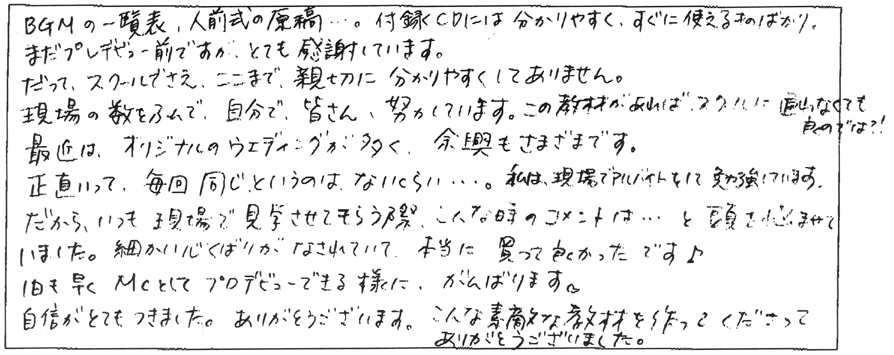 BGMの一覧表、人前式の原稿…。付録CDには分かりやすく、すぐに使えるものばかり。
まだプレデビュー前ですが、とても感謝しています。
だって、スクールでさえ、ここまで、親切に分かりやすくしてありません。
現場の数をふんで、自分で、皆さん、努力しています。この教材があれば、スクールに通わなくても
良いのでは?!
最近は、オリジナルのウエディングが多く、余興もさまざまです。
正直いって、毎回同じというのは、ないくらい…。私は、現場でアルバイトをして勉強しています。
だから、いつも現場で見学させてもらう際、こんな時のコメントは…と頭を悩ませて
いました。細かい心くばりがなされていて、本当に買って良かったです♪
1日も早くMCとしてプロデビューできる様に、がんばります。
自信がとてもつきました。ありがとうございます。こんな素敵な教材を作ってくださって
ありがとうございました。